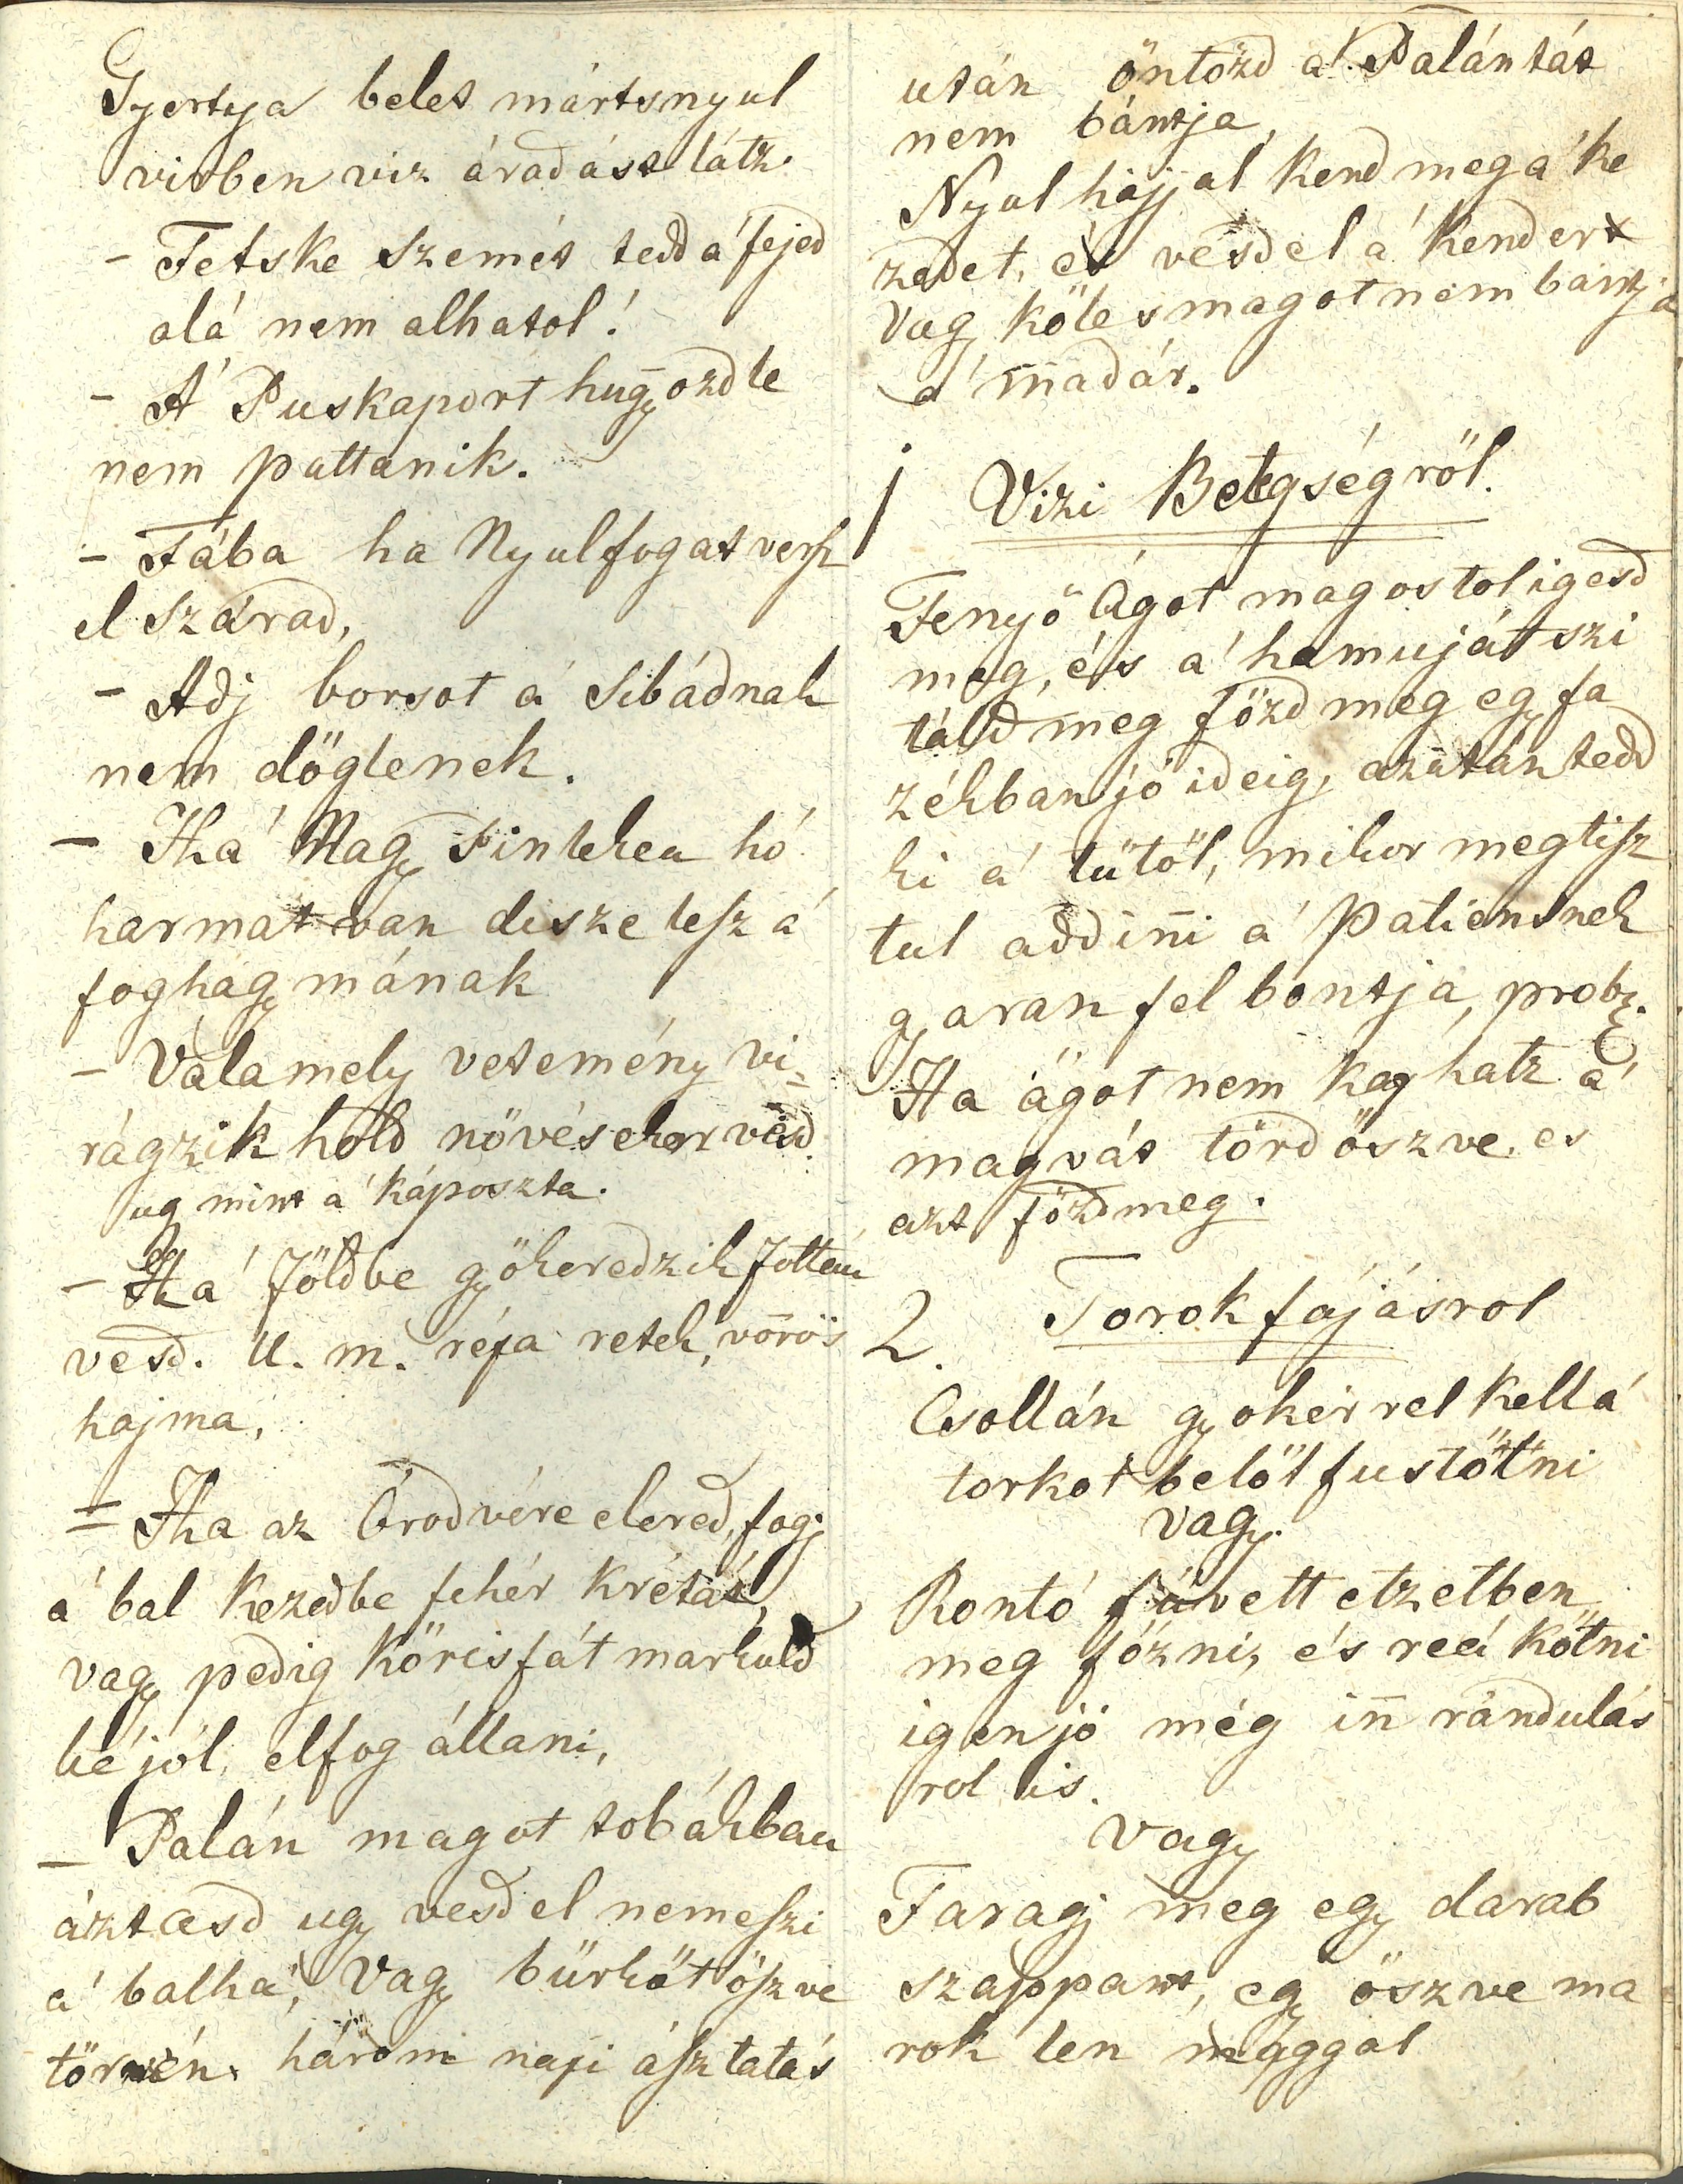 Gyertya belet mártsnyul
virben viz áradást látz.
- Fetske szemét tedd a' fejed
alá nem alhatol!
- A' Puskaport hugyozd le
nem pattanik.
- Fába ha Nyulfogat versz
el szárad,
- Adj borsot a' libádnak
nem döglenek.
- Ha' Nagy Pinteken hó
harmat van disze lesz a'
foghagymának
- Valamely vetemény vi=
rágzik hold növésekor vesd
ug mint a' káposzta.
- Ha' földbe gyökeredzik foltán
vesd. U. m. répa retek, vörös
hajma,
= Ha az Orod vére elered, fogj
a' bal kezedbe fehér krétát,
vagy pedig körisfát markold
bé jól, elfog állani,
- Palán magot tobákban
áztasd ugy vesd el nem eszi
a' balha, Vagy bürköt öszve
törvén három napi ásztatás
után öntözd a' Palántát
nem bántja,
Nyul hájjal kend meg a' ke
zedet, és vesd el a' kendert
Vagy köles magot nem bántja
a' madár.
1 Vizi Betegségröl.
Fenyö Ágot magostol igesd
meg, és a' hamuját szi
táld meg fözd meg egy fa
zékban jó ideig, azután tedd
ki a' tütöl, mikor megtisz
tul add inni a' Patiensnek
gyaran fel bontja, prob.
Ha ágot nem kaphatz a'
magvát törd öszve, es
azt fözd meg.
2. Torok fájásrol
Csollán gyokérrel kell a'
torkot belöl fustölni
vagy.
Rontó füvett etzetben
meg fözni, és reá kötni
igen jó még inn rándulás
rol is.
Vagy
Faragj meg egy darab
szappant, egy öszve ma
rok len maggal